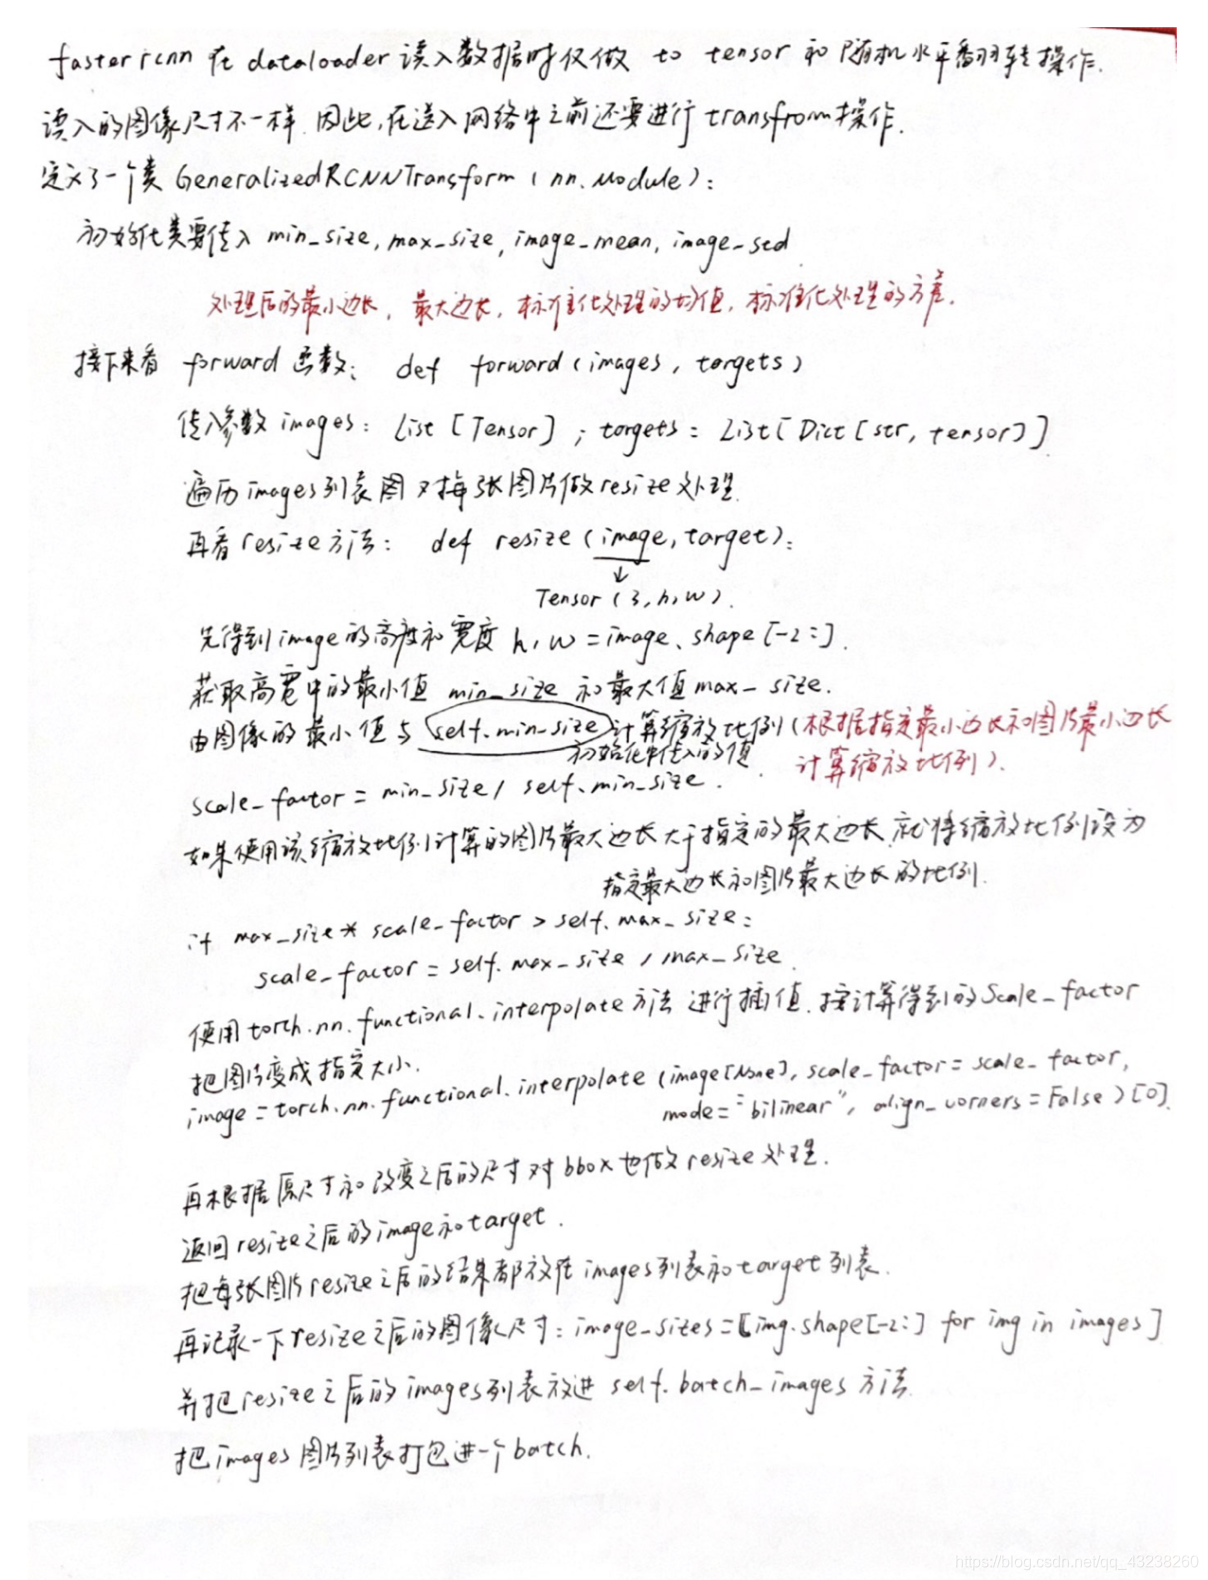 faster rcnn 在 dataloader 读入数据时仅做 to tensor 和 随机水平翻转操作.
读入的图像尺寸不一样. 因此, 在送入网络中之前还要进行 transfrom 操作.
定义了一个类 GeneralizedRCNNTransform ( nn.Module ) :
初始化类要传入 min_size, max_size, image_mean, image_std
处理后的最小边长, 最大边长, 标准化处理的均值, 标准化处理的方差.
接下来看 forward 函数: def forward ( images, targets )
传入参数 images: List [Tensor] ; targets: List [ Dict [ str, tensor ] ]
遍历 images 列表图 对每张图片做 resize 处理.
再看 resize 方法: def resize ( image, target ):
Tensor ( 3, h, w ).
先得到 image 的高度和宽度 h, w = image.shape [-2:].
获取高宽中的最小值 min_size 和最大值 max_size.
由图像的最小值与 self.min_size 计算缩放比例 (根据指定最小边长和图片最小边长
初始化中传入的值. 计算缩放比例).
scale_factor = min_size / self.min_size.
如果使用该缩放比例计算的图片最大边长大于指定的最大边长, 就将缩放比例设为
指定最大边长和图片最大边长的比例.
if max_size * scale_factor > self.max_size:
scale_factor = self.max_size / max_size.
使用 torch.nn.functional.interpolate 方法 进行插值. 按计算得到的 Scale_factor
把图片变成指定大小.
image = torch.nn.functional.interpolate ( image[None], scale_factor = scale_factor,
mode = "bilinear", align_corners = False ) [0].
再根据原尺寸和改变之后的尺寸对 bbox 也做 resize 处理.
返回 resize 之后的 image 和 target .
把每张图片 resize 之后的结果都放在 images 列表和 target 列表.
再记录一下 resize 之后的图像尺寸: image_sizes = [img.shape[-2:] for img in images]
并把 resize 之后的 images 列表放进 self.batch_images 方法.
把 images 图片列表打包进一个 batch.
https://blog.csdn.net/qq_43238260